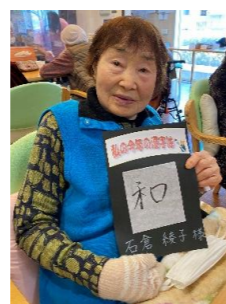 私の今年の漢字は
和
石倉 綾子 様